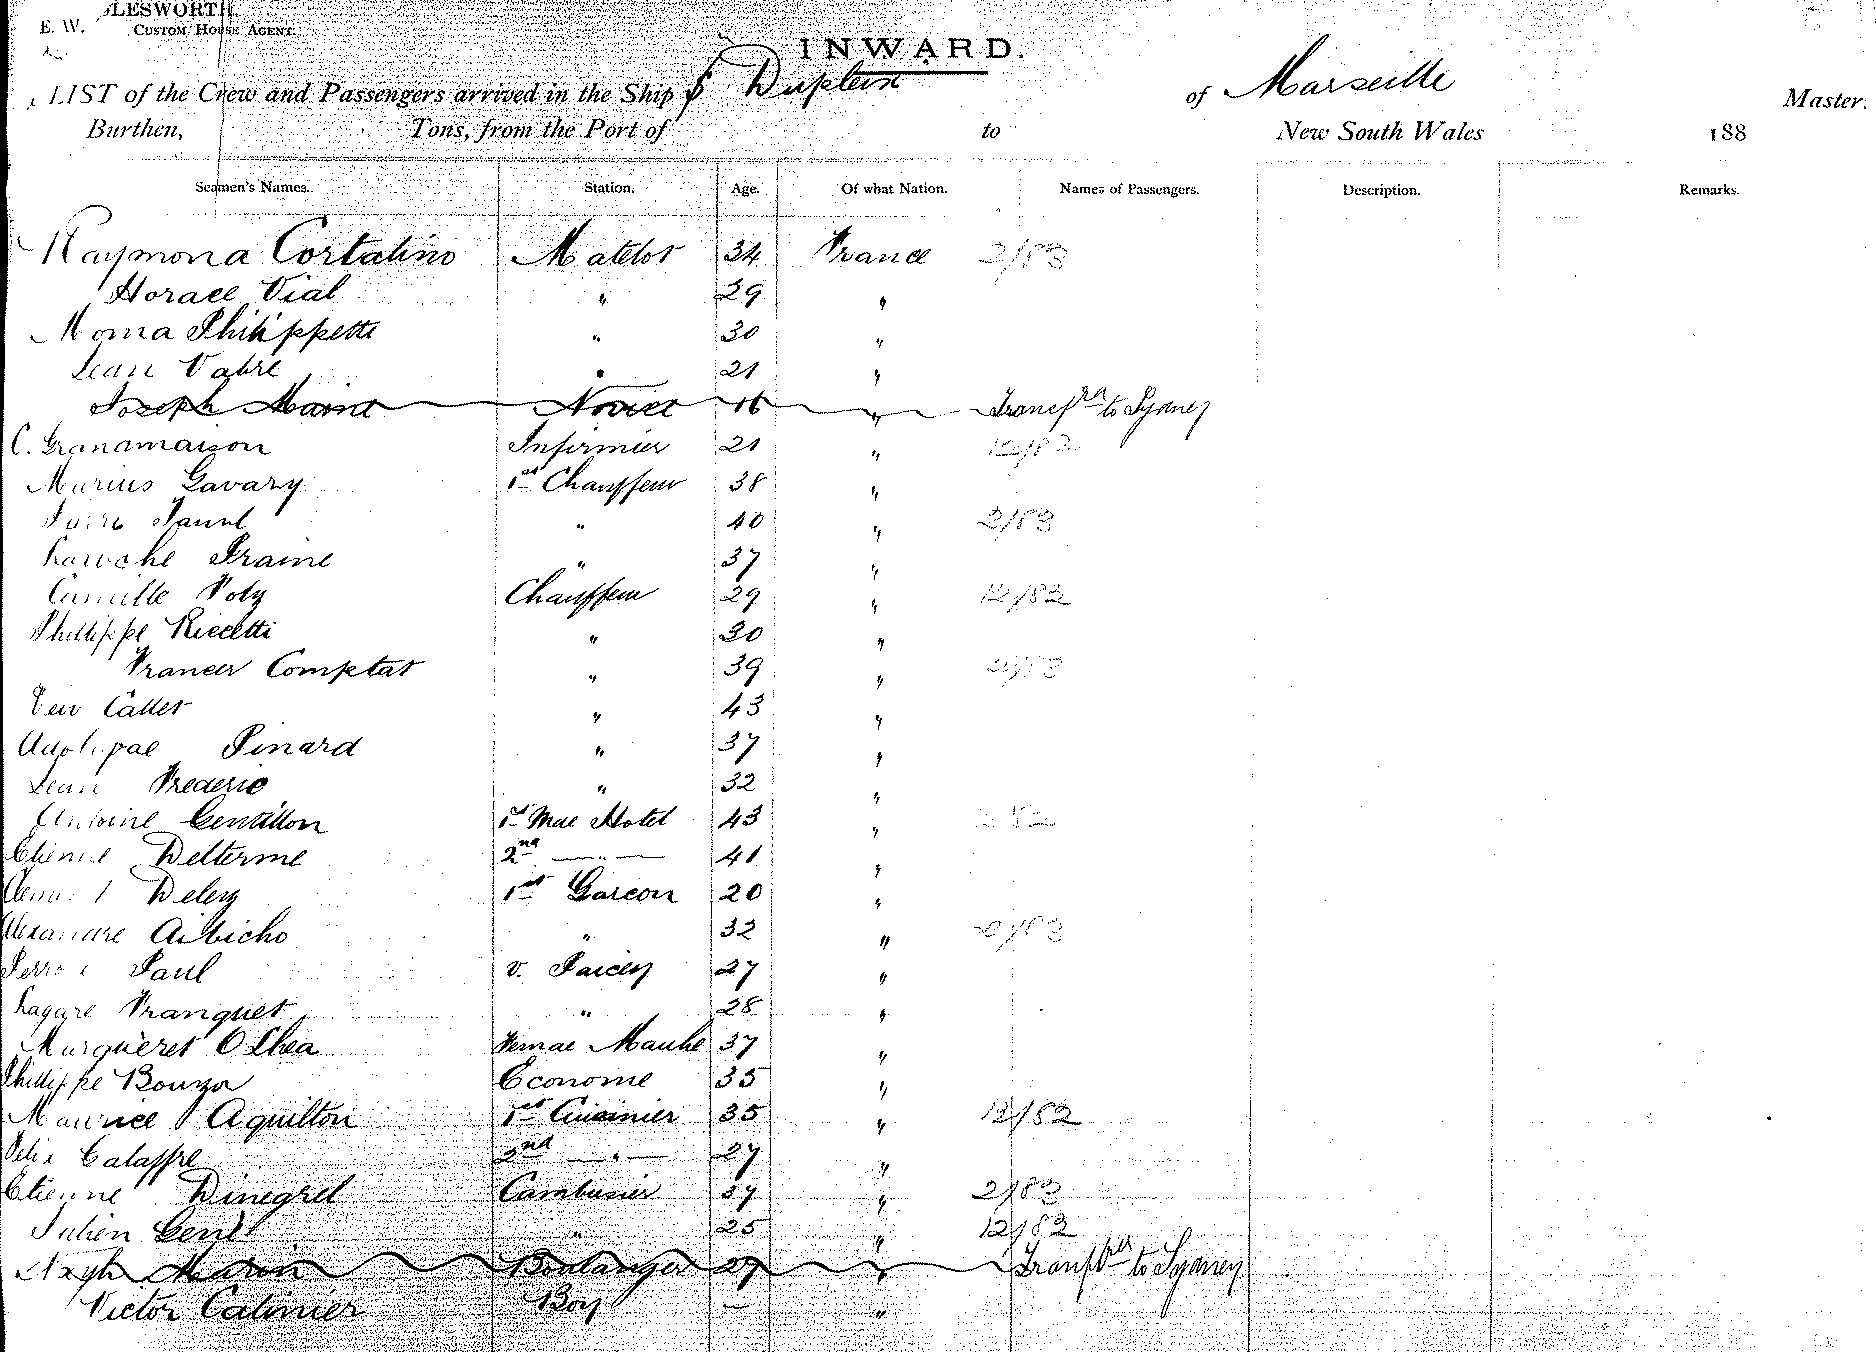 LESWORTH.
E. W. CUSTOM HOUSE AGENT.
INWARD.
LIST of the Crew and Passengers arrived in the Ship Dupleix of Marseille Master.
Burthen, Tons, from the Port of to New South Wales 188
Seamen's Names. Station. Age. Of what Nation. Names of Passengers. Description. Remarks.
Raymond Cortatino Matelot 34 France 2/83
Horace Vial " 29 "
Moma Philippette " 30 "
Jean Vabre " 21 "
Joseph Novice 16 " to Sydney
C. Grandmaison Infirmier 21 " 12/82
Marius Gavary 1st Chauffeur 38 "
" 40 " 2/83
Laroche " 37 "
Camille Poly Chauffeur 29 " 12/82
Phillippe Riccetti " 30 "
Comptat " 39 "
Callet " 43 "
Adolphe Pinard " 37 "
Jean Frederic " 32 "
Antoine Gentillon 1st Mae Hotel 43 "
Etienne Delterme 2nd — " — 41 "
1st Garcon 20 "
Alexandre Aibicho " 32 "
Paul 27 "
Franquet " 28 "
Margueret O Shea 37 "
Phillippe Econome 35 "
Maurice Aquilton 1st Cuisinier 35 " 12/82
Felix Calaffre 2nd — " — 27 "
Etienne Dinegrel Cambusier 37 " 2/83
Julien Gent " 25 " 12/82
Marin Boulanger 27 " to Sydney
Victor Calinier Boy — "